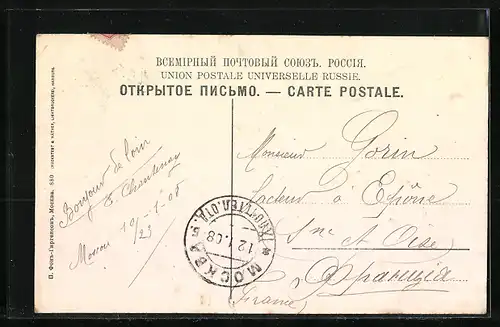 ВСЕМІРНЫЙ ПОЧТОВЫЙ СОЮЗЪ. РОССІЯ.
UNION POSTALE UNIVERSELLE RUSSIE.
ОТКРЫТОЕ ПИСЬМО. — CARTE POSTALE.
Bonjour de loin
Moscou 10/23 - 1 - 08
Monsieur Gorin
Facteur à Epône
Sne et Oise
Франція
(France)
МОСКВА
12.1.08
П. Фонъ-Гиргенсонъ, Москва. 880